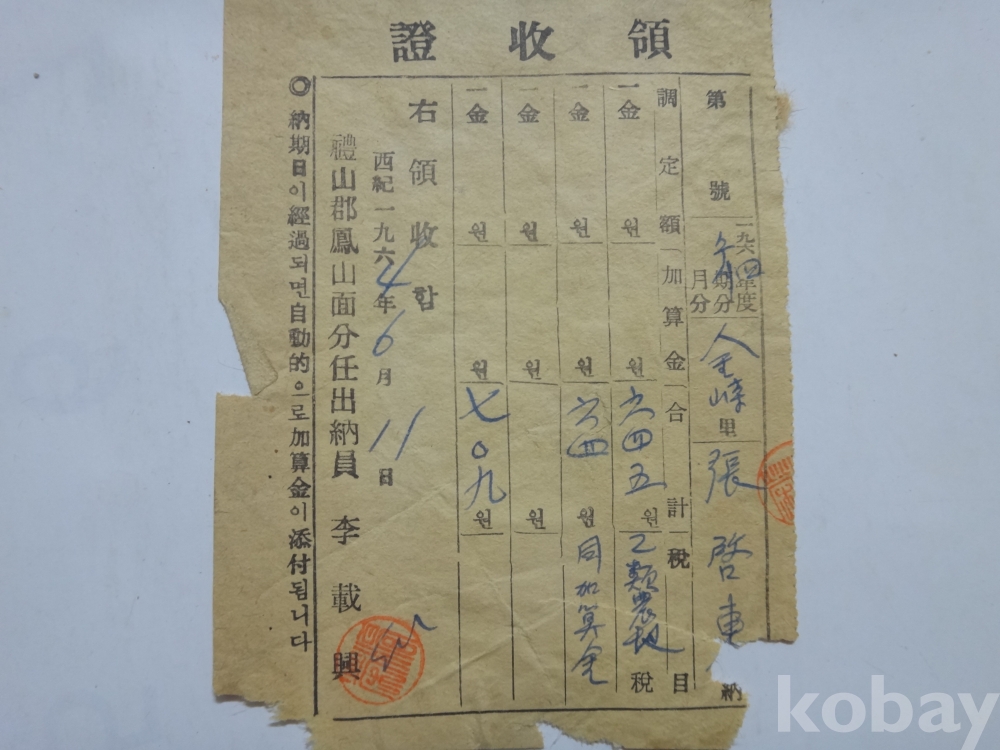 領收證
第 號
一九六四年度 期分 月分
里 張啓車 納
調定額 加算金 合計 稅目
一金 원 원 六四五 원 乙類農地稅
一金 원 원 六四 원 同加算金
一金 원 원 원
一金 원 원 七〇九 원
右領收함
西紀一九六4年6月11日
禮山郡鳳山面分任出納員 李載興
◎納期日이經過되면自動的으로加算金이添付됩니다
kobay